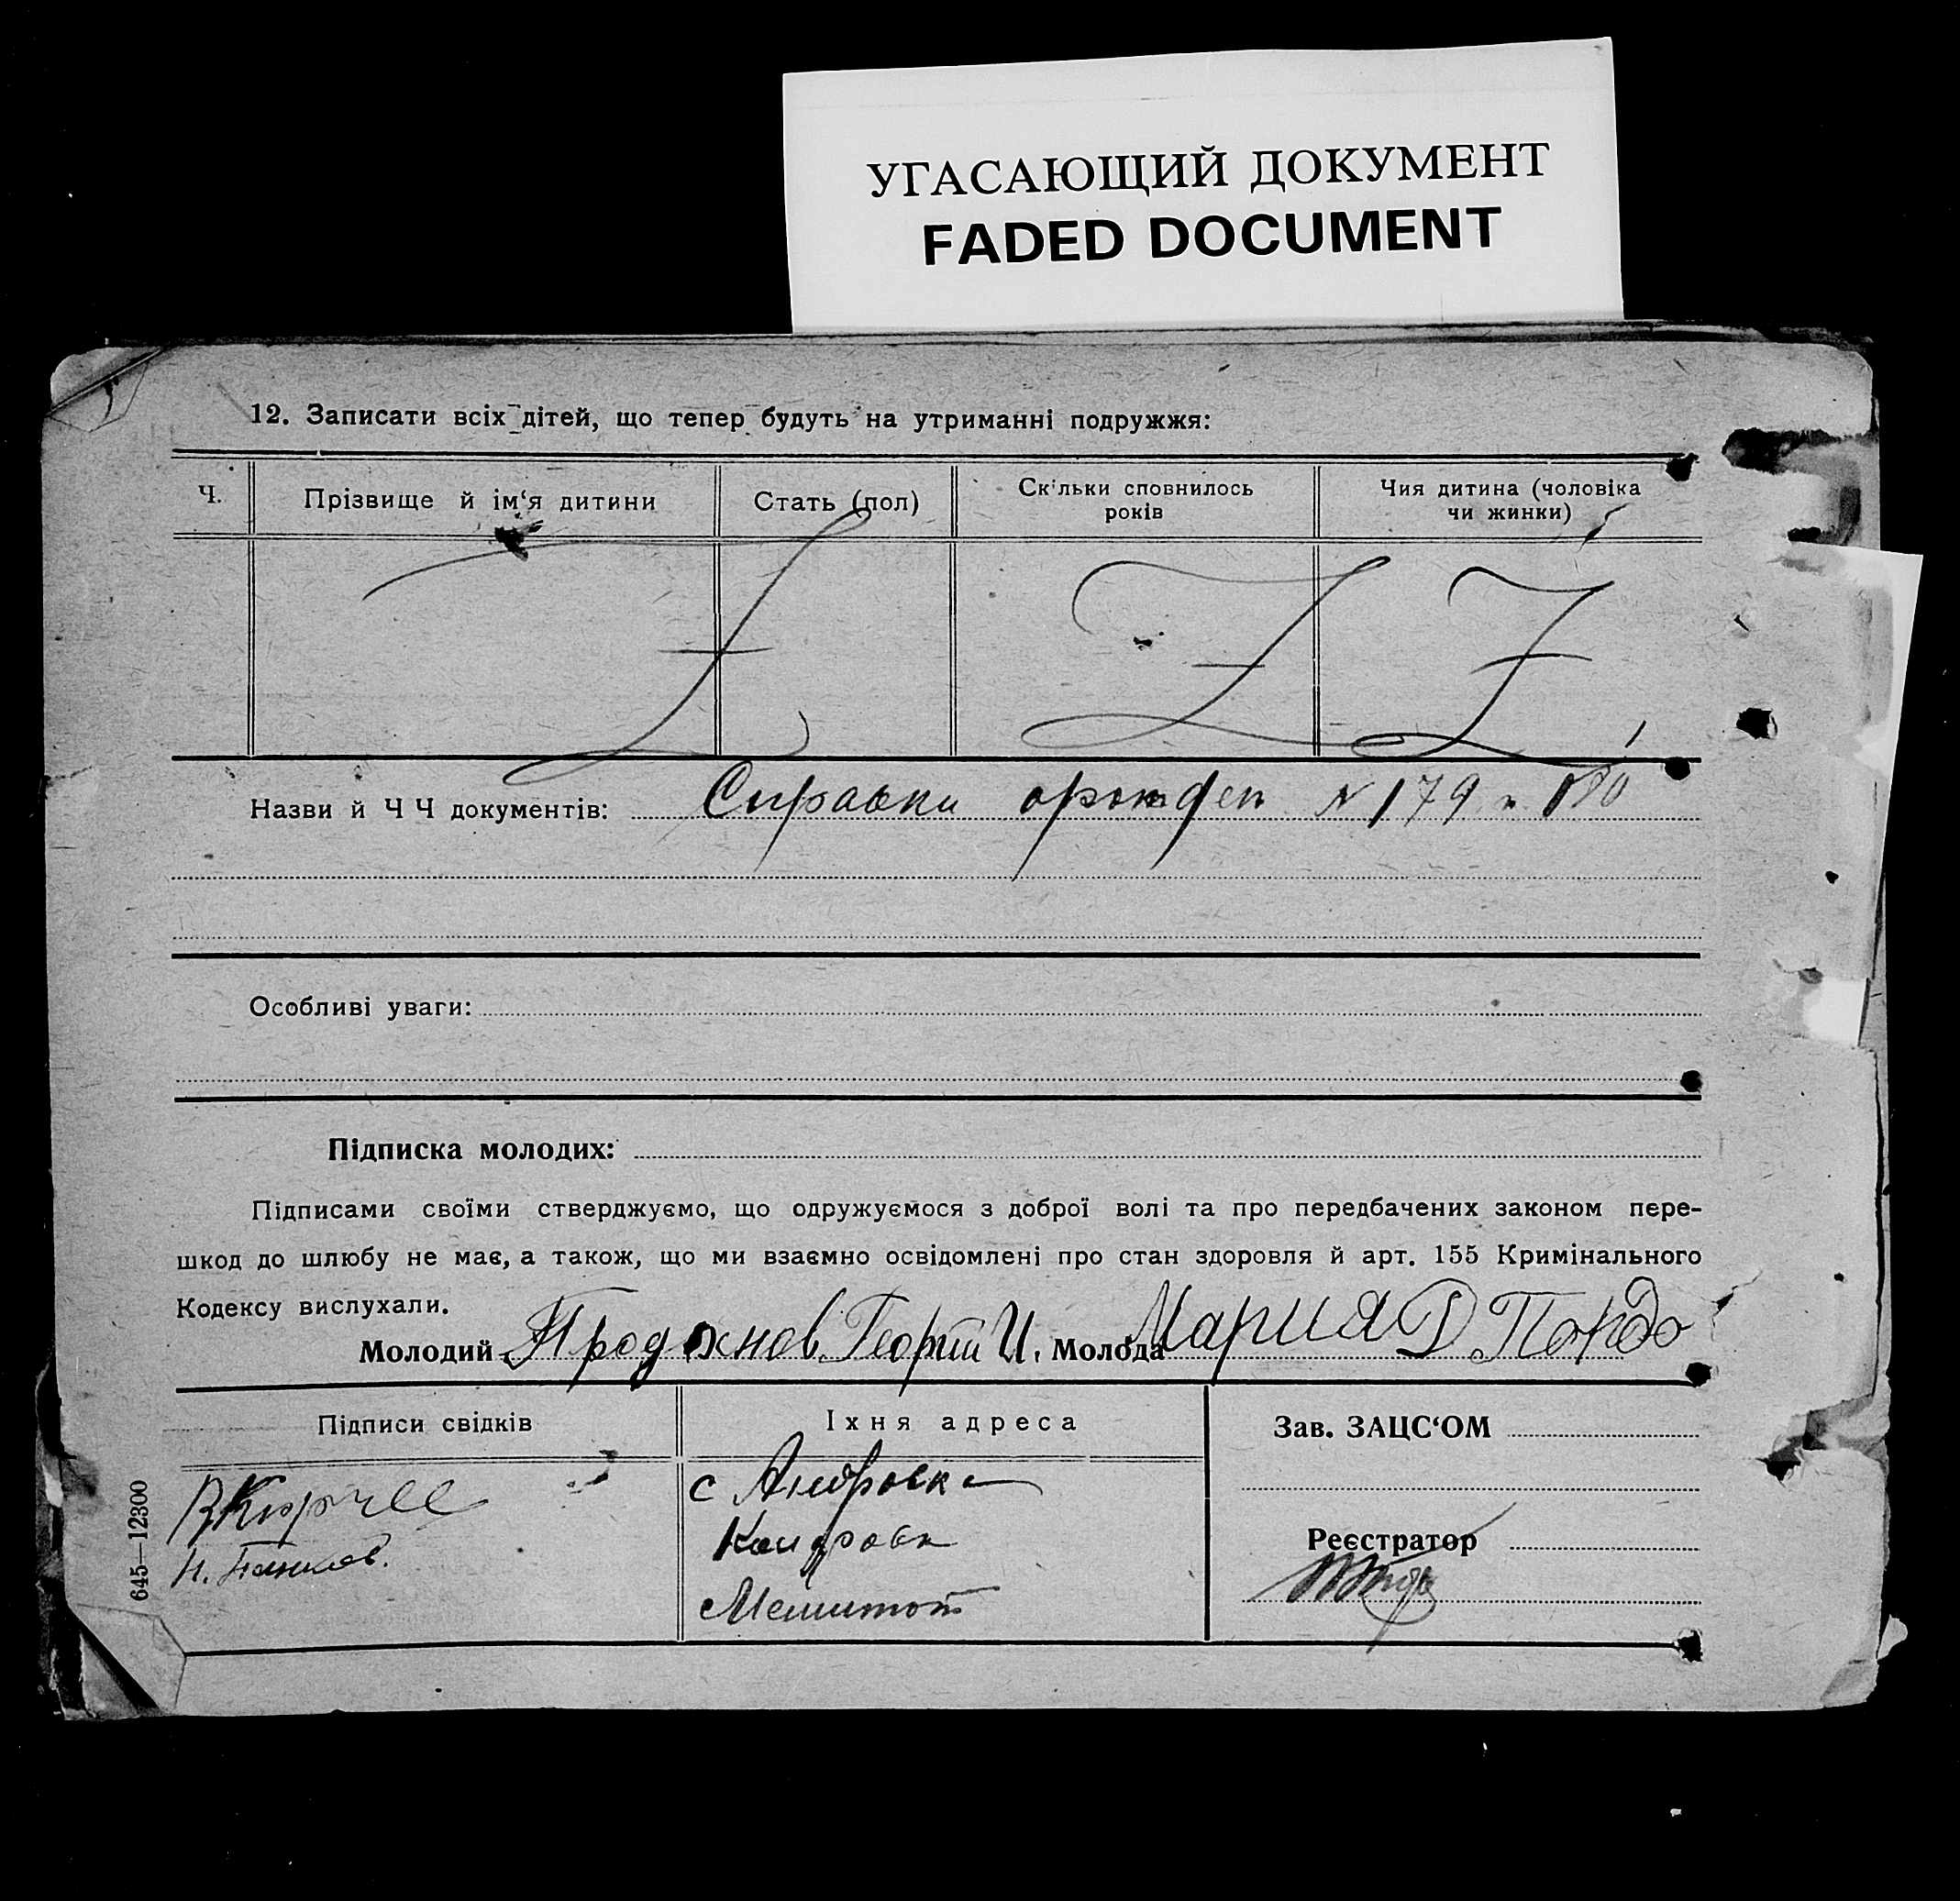 УГАСАЮЩИЙ ДОКУМЕНТ
FADED DOCUMENT
12. Записати всіх дітей, що тепер будуть на утриманні подружжя:
Ч.
Прізвище й ім‘я дитини
Стать (пол)
Скільки сповнилось
років
Чия дитина (чоловіка
чи жинки)
Назви й Ч Ч документів: Справки о рожден N 179 и 180
Особливі уваги:
Підписка молодих:
Підписами своїми стверджуємо, що одружуємося з доброї волі та про передбачених законом пере-
шкод до шлюбу не має, а також, що ми взаємно освідомлені про стан здоровля й арт. 155 Кримінального
Кодексу вислухали.
Молодий Проданов Георгий И. Молода Мария Д
Підписи свідків
Їхня адреса
Зав. ЗАЦС‘ОМ
с Андровка
Реєстратор
645—12300